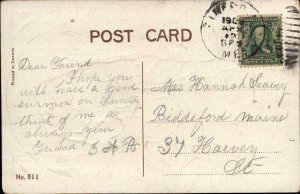 POST CARD
Printed in Saxony
190
AP
M
Dear Friend
I hope you
will have a Good
sermon on Sunday
think of me as
always your
Friend E A B
Mrs Hannah Seavey
Biddeford Maine
37 Harvey
St
No. 811